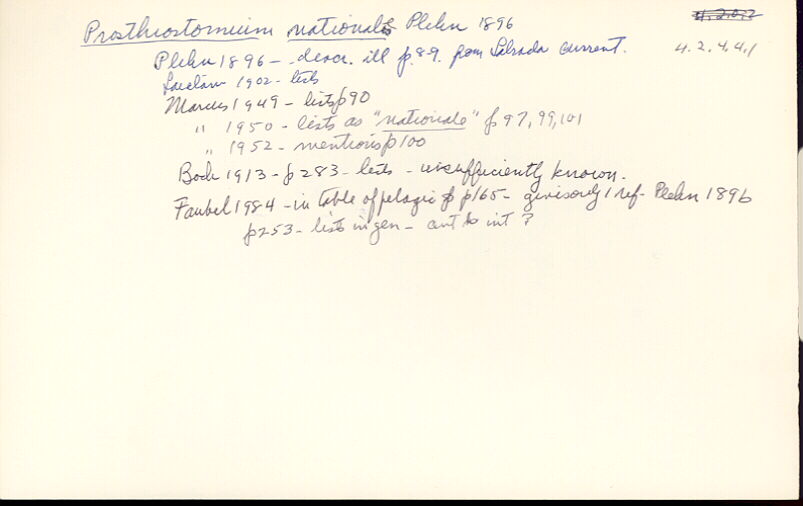 Prosthiostomium nationalis Plehn 1896
4.2.4.4.1
Plehn 1896 - descr. ill p.89. from Labrada current.
Laidlaw 1902 - lists
Marcus 1949 - lists p90
" 1950 - lists as "nationale" p97, 99, 101
" 1952 - mentions p100
Bock 1913 - p283 - lists - unsufficiently known.
Faubel 1984 - in table of pelagic p165 - gives only 1 ref - Plehn 1896
p253 - lists in gen - ant to int ?